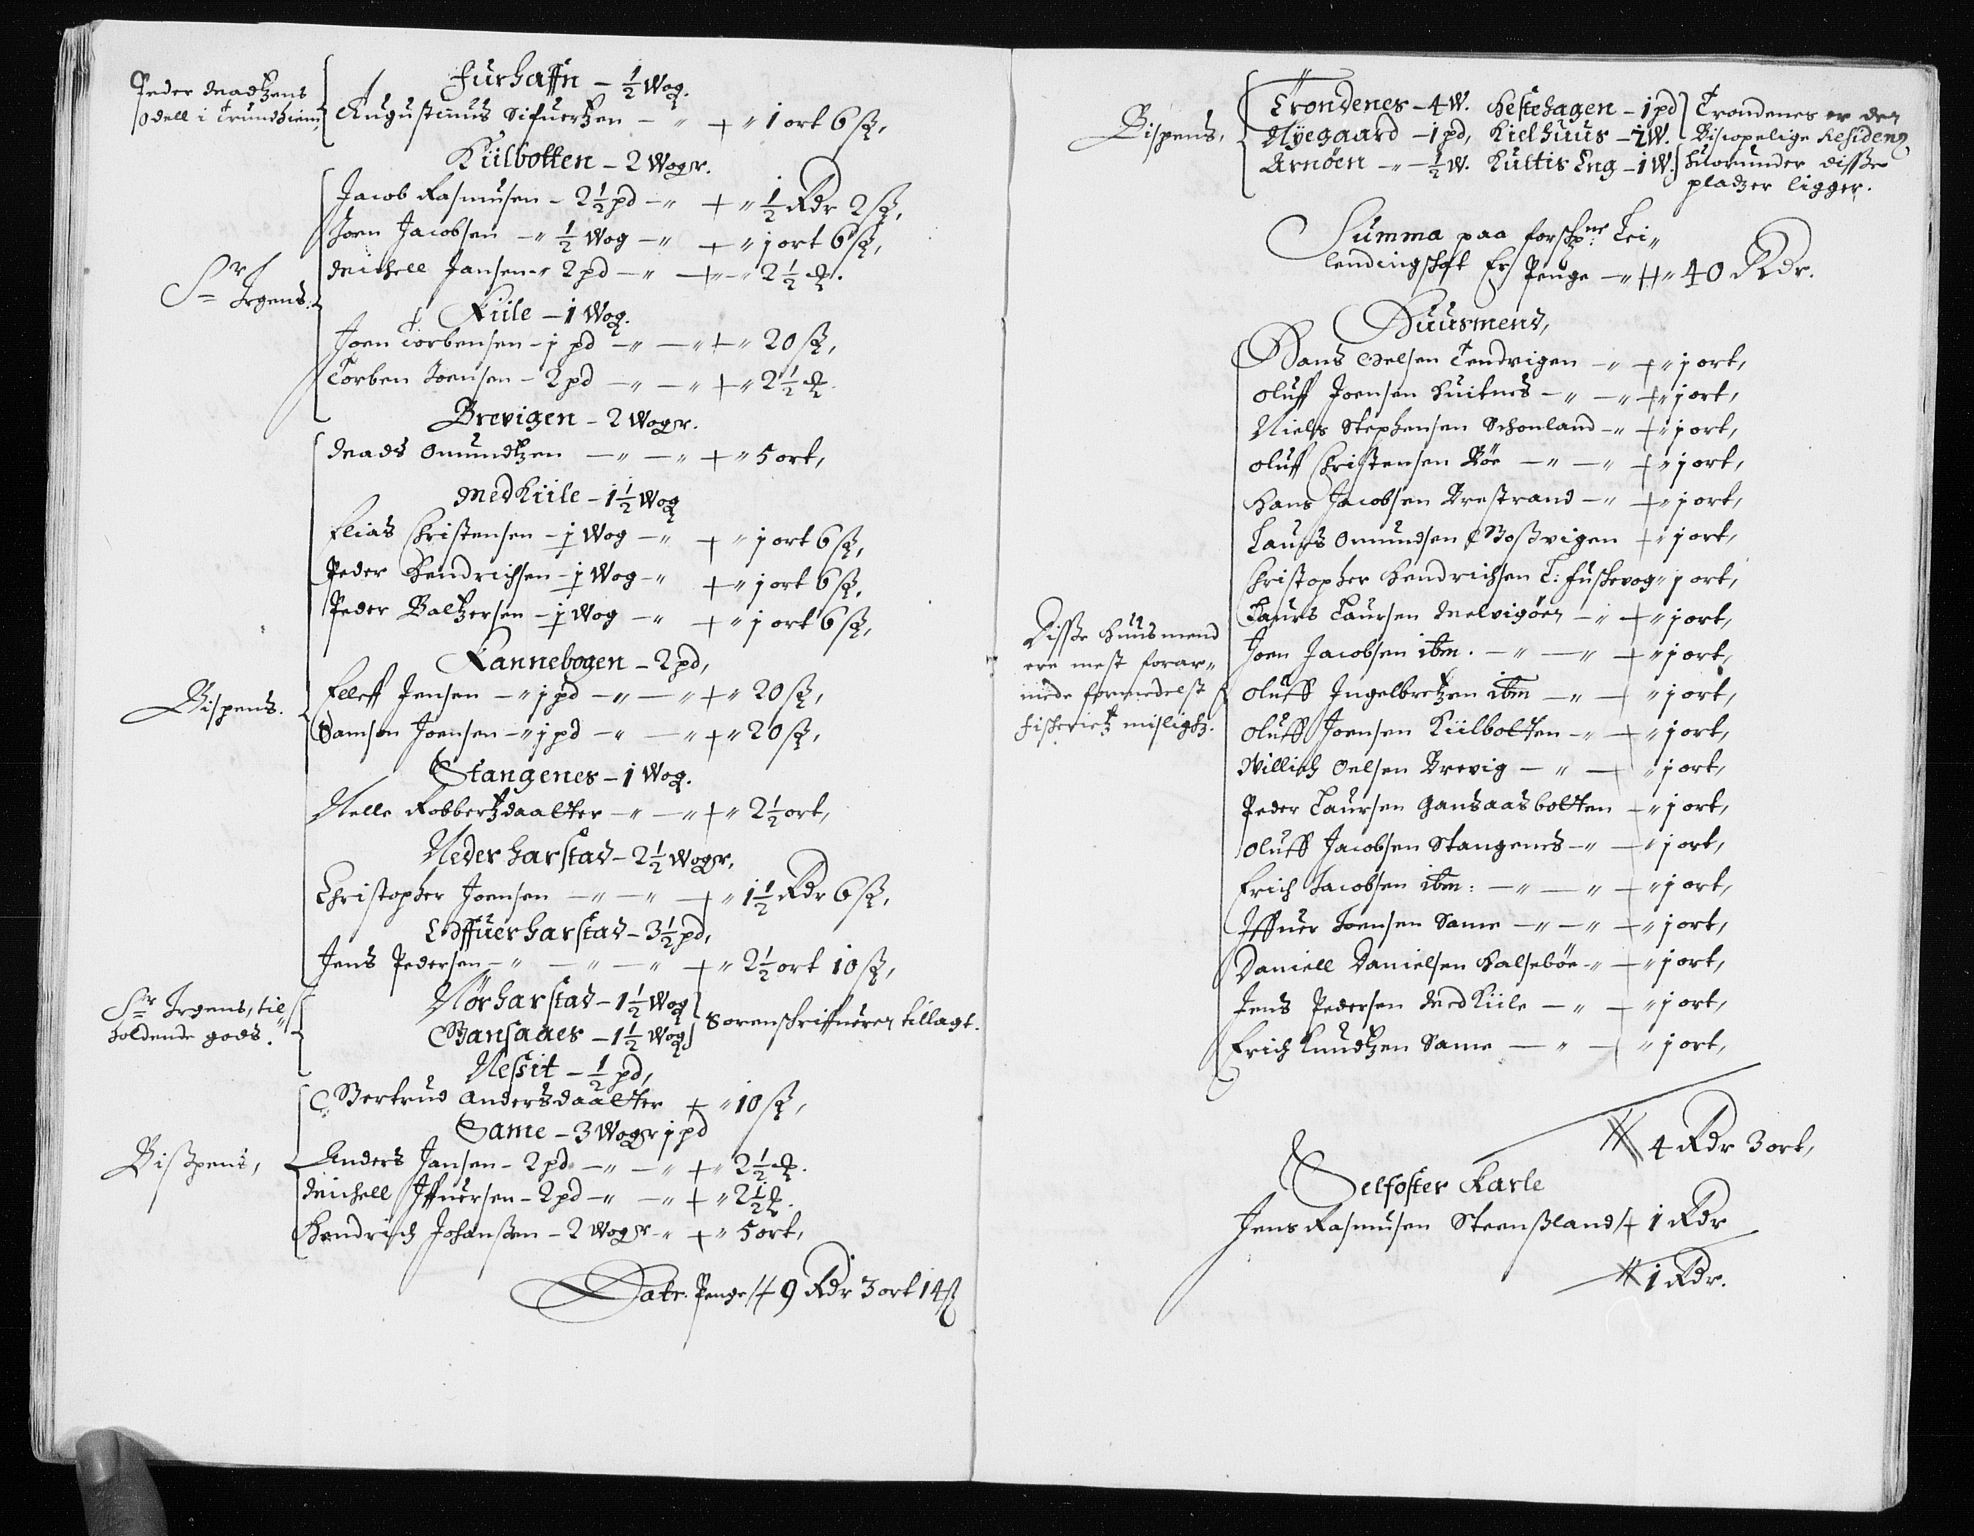 Peder Madtzens
odell i Trundhiem,
Furhaffn - ½ Wog.
Augustinus Sifuertzen - 1 ort 6 ß,
Kiilbotten - 2 Wogr.
Jacob Rasmusen - 2½ pd - ½ Rdr 2 ß,
Joen Jacobsen - ½ Wog - 1 ort 6 ß,
Michell Jansen - 2 pd - 2½ ort.
Sr Irgens.
Kiile - 1 Wog.
Joen Torbensen - 1 pd - 20 ß,
Torben Joensen - 2 pd - 2½ ort.
Brevigen - 2 Wogr.
Mads Omundtzen - 5 ort,
Medkiile - 1½ Wog
Elias Christensen - ½ Wog - 1 ort 6 ß,
Peder Hendrichsen - ½ Wog - 1 ort 6 ß,
Peder Baltzersen - ½ Wog - 1 ort 6 ß,
Kannebogen - 2 pd,
Bispens.
Elleff Jensen - 1 pd - 20 ß,
Samson Joensen - 1 pd - 20 ß,
Stangenes - 1 Wog.
Nelle Robbertzdaatter - 2½ ort,
Neder harstad - 2½ Wogr,
Christopher Joensen - 1½ Rdr 6 ß,
Offuer harstad - 3½ pd,
Jens Pedersen - 2½ ort 10 ß,
Sr Irgens, til
holdende gods.
Nörharstad - 1½ Wog
Gansaaes - 1½ Wog
Sorenschriffueren tillagt.
Nessit - ½ pd,
Giertrud Andersdaatter - 10 ß,
Same - 3 Wogr 1 pd
Bißpens,
Anders Jansen - 2 pd - 2½ ort.
Michell Iffuersen - 2 pd - 2½ ort.
Hendrich Johanßen - 2 Wogr - 5 ort,
Latr. Penge 49 Rdr 3 ort 14 ß
Bispens,
Trondenes - 4 W. Hestehagen - 1 pd
Nyegaard - 1 pd, Kielhuus - 2 W.
Arnöen - ½ W. Kultis Eng - 1 W.
Trondenes er den
Biscopelige Residentz
huorunder disse
pladzer ligger.
Summa paa forschne Lei
lendingschat Er Penge - 140 Rdr.
Huusmend,
Hans Nelsen Tendvigen - 1 ort,
Oluff Joensen Huitnes - 1 ort,
Niels Stephensen Schonland - 1 ort,
Oluff Christensen Böe - 1 ort,
Hans Jacobsen Brestrand - 1 ort,
Laurs Omundsen Goßvigen 1 ort,
Christopher Hendrichsen T: Fuskevog 1 ort,
Laurs Laursen Melvigöen - 1 ort,
Joen Jacobsen ibm. - 1 ort,
Oluff Ingelbretzen ibm - 1 ort,
Oluff Joensen Kiilbotten - 1 ort,
Willich Oelsen Brevig - 1 ort,
Peder Laursen Gansaasbotten - 1 ort,
Oluff Jacobsen Stangenes - 1 ort,
Erich Jacobsen ibm: - 1 ort,
Iffuer Joensen Same - 1 ort,
Daniell Danielsen Halseböe - 1 ort,
Jens Pedersen Medkiile - 1 ort,
Erich Knudtzen Same - 1 ort,
Disse Huusmend
ere mest forar
mede formedelst
fischeriets misligh.
4 Rdr 3 ort,
Selfoster Karle
Jens Rasmusen Steenßland 1 Rdr
1 Rdr.